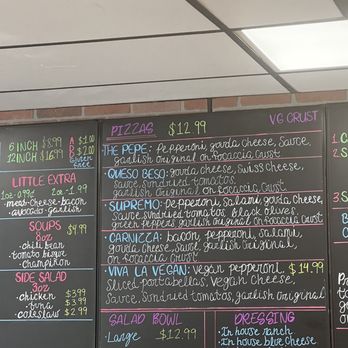 6 INCH $8.99
12 INCH $16.99
A $1.00
B $2.00
Gluten Free
LITTLE EXTRA
1oz - 0.99¢ 2oz - 1.99
meat - cheese - bacon
- avocado - garlish
SOUPS $4.99
8oz
- chili bean
- tomato bisque
- champikon
SIDE SALAD
3oz
- chicken $3.99
- tuna $3.99
- coleslaw $2.99
PIZZAS $12.99 VG CRUST
THE PEPE: Pepperoni, gouda cheese, sauce,
garlish original on focaccia crust
QUESO BESO: gouda cheese, swiss cheese,
sauce, sundried tomatos,
garlish original on focaccia crust
SUPREMO: pepperoni, salami, gouda cheese,
sauce, sundried tomatos, black olives,
green peppers, garlish original on focaccia crust
CARNICZA: bacon, pepperoni, salami,
gouda cheese, sauce, garlish original,
on focaccia crust
VIVA LA VEGAN: vegan pepperoni, $14.99
sliced portabellas, vegan cheese,
sauce, sundried tomatos, garlish original
SALAD BOWL
- Large $12.99
DRESSING
- In house ranch
- In house blue cheese